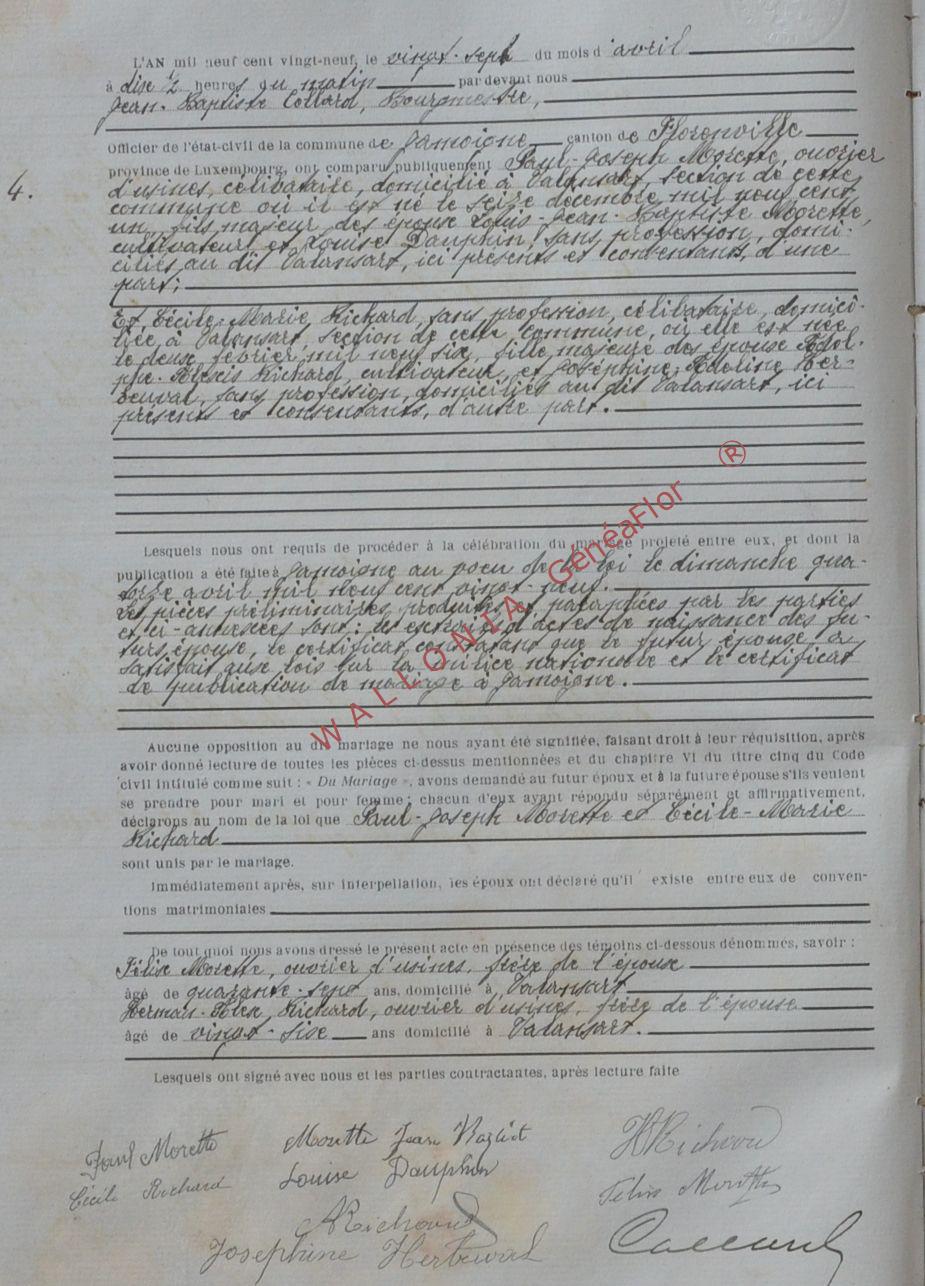 L'AN mil neuf cent vingt-neuf, le vingt-sept du mois d'avril
à dixe ½ heures du matin par devant nous
Jean-Baptiste Collard, Bourgmestre,
Officier de l'état-civil de la commune de Jamoigne canton de Florenville
province de Luxembourg, ont comparu publiquement Paul-Joseph Morette, ouvrier
4.
d'usines, célibataire, domicilié à Valansart, section de cette
commune où il est né le seize décembre mil neuf cent
un, fils majeur des époux Louis-Jean-Baptiste Morette,
cultivateur et Louise Dauphin, sans profession, domi-
ciliés au dit Valansart, ici présents et consentants, d'une
part;
Et, Cécile-Marie Richard, sans profession, célibataire, domici-
liée à Valansart, section de cette commune, où elle est née
le deux février mil neuf six, fille majeure des époux Adol-
phe-Alexis Richard, cultivateur, et Joséphine-Adeline Her-
beuval, sans profession, domiciliés au dit Valansart, ici
présents et consentants, d'autre part.
Lesquels nous ont requis de procéder à la célébration du mariage projeté entre eux, et dont la
publication a été faite à Jamoigne au voeu de la loi le dimanche qua-
torze avril mil neuf cent vingt-neuf.
Les pièces préliminaires produites et paraphées par les parties
et ci-annexées sont: les extraits d'actes de naissance des fu-
turs époux, le certificat constatant que le futur époux a
satisfait aux lois sur la milice nationale et le certificat
de publication de mariage à Jamoigne.
Aucune opposition au dit mariage ne nous ayant été signifiée, faisant droit à leur réquisition, après
avoir donné lecture de toutes les pièces ci-dessus mentionnées et du chapitre VI du titre cinq du Code
civil intitulé comme suit : « Du Mariage », avons demandé au futur époux et à la future épouse s'ils veulent
se prendre pour mari et pour femme; chacun d'eux ayant répondu séparément et affirmativement,
déclarons au nom de la loi que Paul-Joseph Morette et Cécile-Marie
Richard
sont unis par le mariage.
Immédiatement après, sur interpellation, les époux ont déclaré qu'il existe entre eux de conven-
tions matrimoniales
De tout quoi nous avons dressé le présent acte en présence des témoins ci-dessous dénommés, savoir :
Félix Morette, ouvrier d'usines, frère de l'époux
âgé de quarante-sept ans, domicilié à Valansart
Herman-Alex, Richard, ouvrier d'usines, frère de l'épouse
âgé de vingt-six ans domicilié à Valansart.
Lesquels ont signé avec nous et les parties contractantes, après lecture faite
Paul Morette Morette Jean Baptist HRichard
Cécile Richard Louise Dauphin Félix Morette
ARichard
Joséphine Herbeuval Collard
WALLONIA GénéaFlor ®